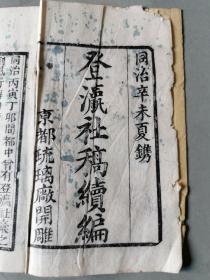 同治辛未夏鐫
登瀛社稿續編
京都琉璃廠開雕
同治丙寅丁卯間都中曾有登瀛社藁之